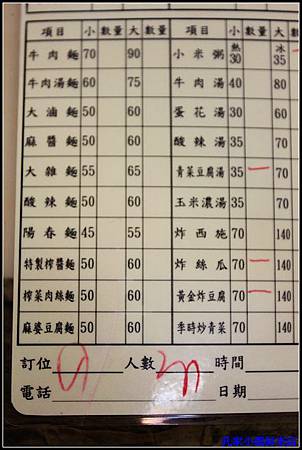 項目 小 數量 大 數量 項目 小 數量 大
牛肉麵 70 90 小米粥 熱30 冰35
牛肉湯麵 60 75 牛肉湯 40 80
大滷麵 50 60 蛋花湯 30 60
麻醬麵 50 60 酸辣湯 35 70
大雜麵 55 65 青菜豆腐湯 35 一 70
酸辣麵 50 60 玉米濃湯 35 70
陽春麵 45 55 炸西施 70 140
特製榨醬麵 50 60 炸絲瓜 70 一 140
榨菜肉絲麵 50 60 黃金炸豆腐 70 一 140
麻婆豆腐麵 50 60 季時炒青菜 70 140
訂位 人數 時間
電話 日期